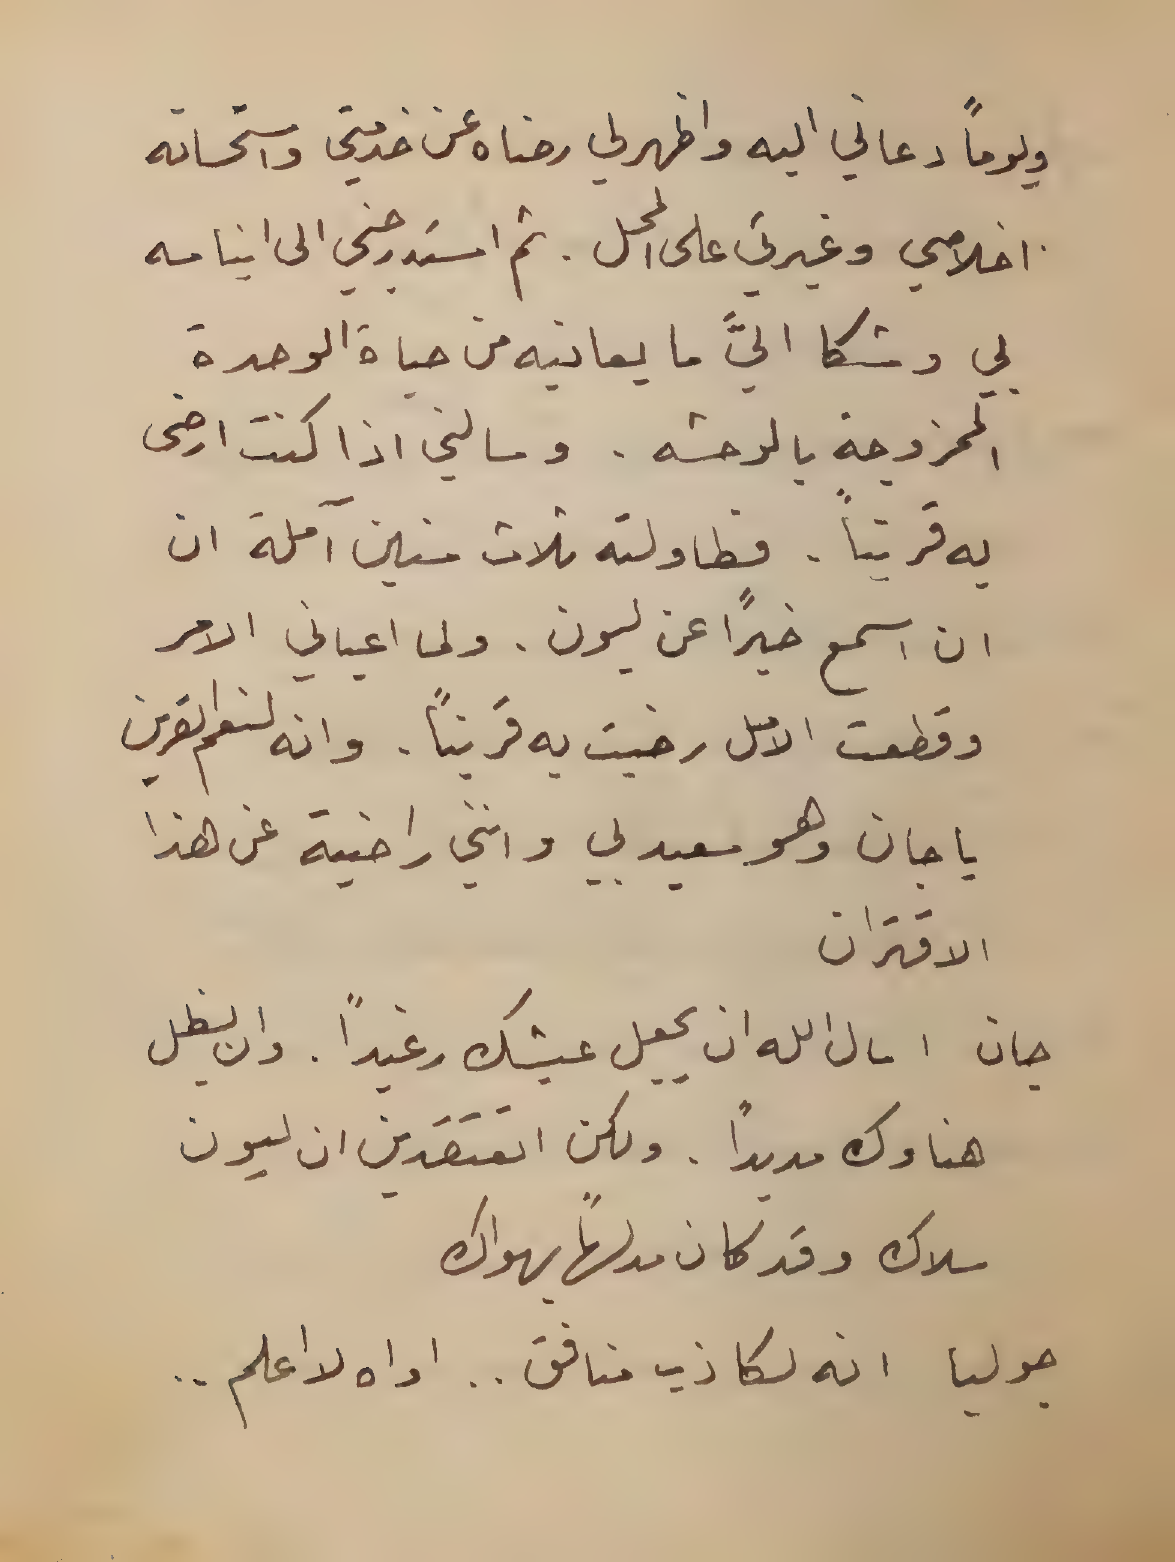 ويوماً دعاني اليه واظهر لي رضاه عن خدمتي واستحسانه
اخلاصي وغيرتي على المحل . ثم استدرجني الى ايناسه
بي وشكا اليَّ ما يعانيه من حياة الوحدة
الممزوجة بالوحشه . وسالني اذا كنت ارضى
به قريناً . فطاولته ثلاث سنين آملة ان
ان اسمع خبراً عن ليون . ولما اعياني الامر
وقطعت الامل رضيت به قريناً . وانه لنعم القرين
يا جان وهو سعيد بي وانني راضية عن هذا
الاقتران
جان اسال الله ان يجعل عيشك رغيداً . وان يظل
هناوك مديداً . ولكن اتعتقدين ان ليون
سلاك وقد كان مدلهاً بهواك
جوليا انه لكاذب منافق .. اواه لا اعلم ..